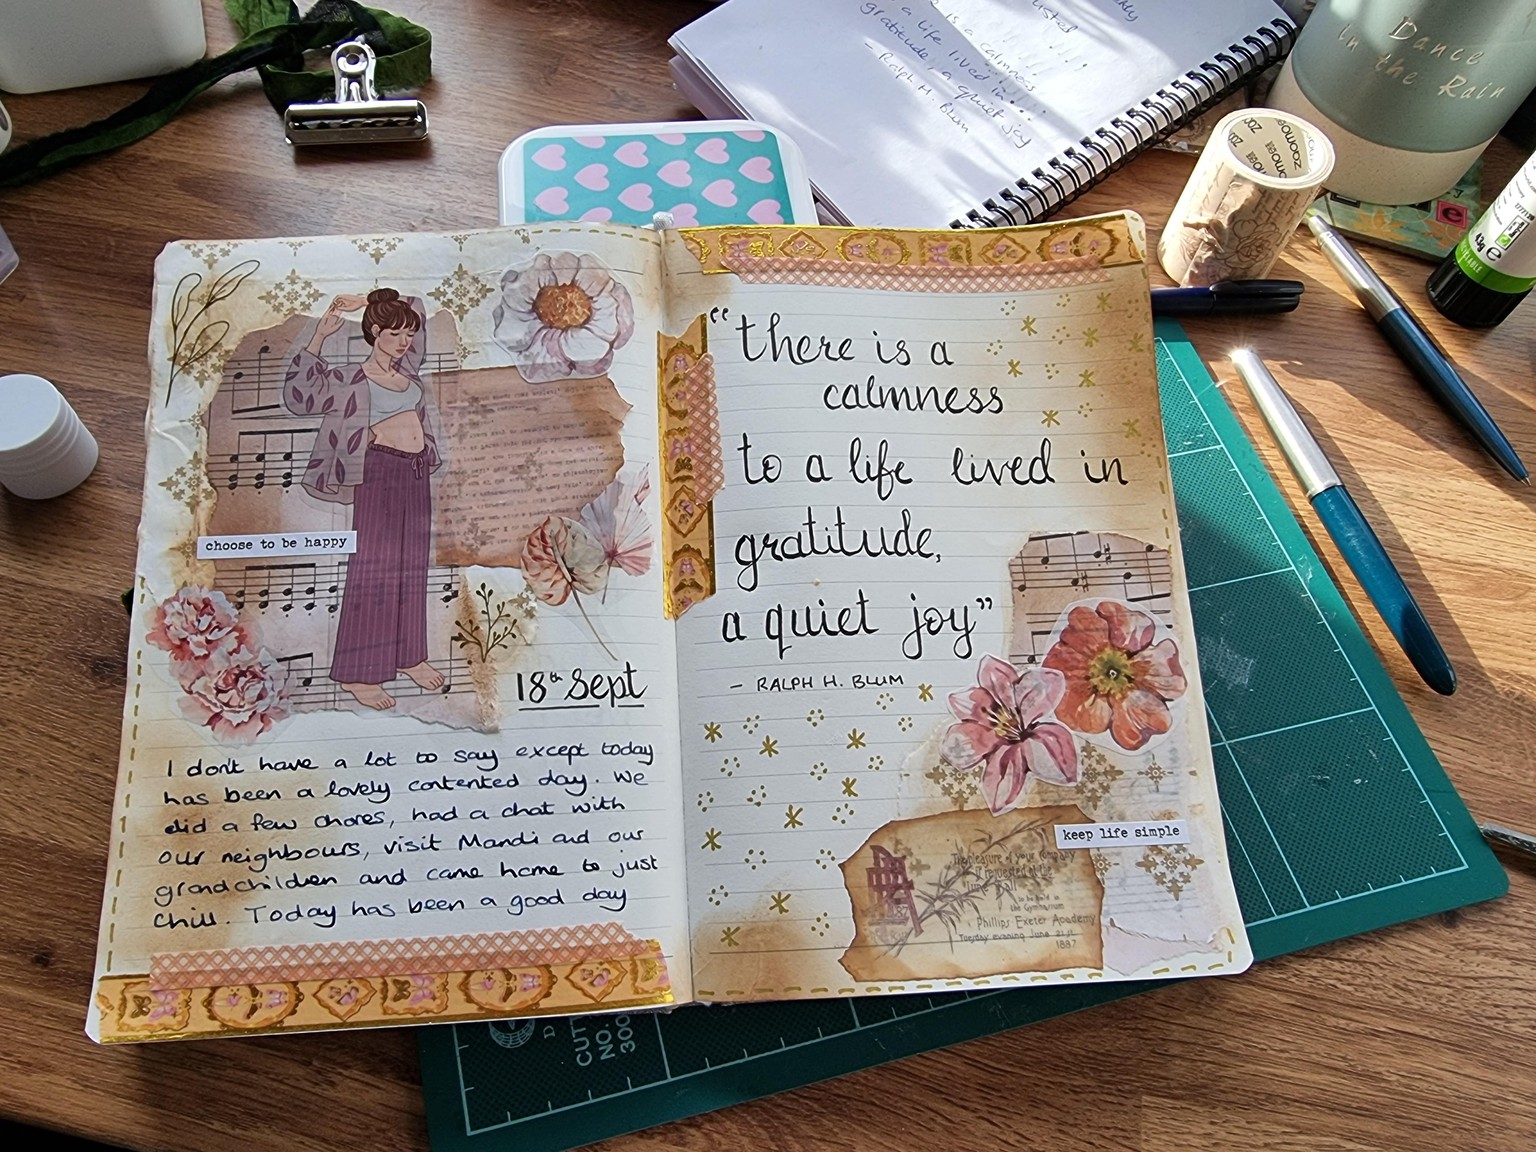 choose to be happy
18th Sept
I don't have a lot to say except today
has been a lovely contented day. We
did a few chores, had a chat with
our neighbours, visit Mandi and our
grandchildren and came home to just
chill. Today has been a good day
"there is a
calmness
to a life lived in
gratitude,
a quiet joy"
- RALPH H. BLUM
keep life simple
The pleasure of your company
is requested at the
June Ball
to be held in
the Gymnasium
Phillips Exeter Academy
Tuesday evening June 21st
1887
is a calmness
a life lived in
gratitude, a quiet joy
- Ralph H. Blum
Dance
in the Rain
zoomoe
43g e
CUTT
NO.
300